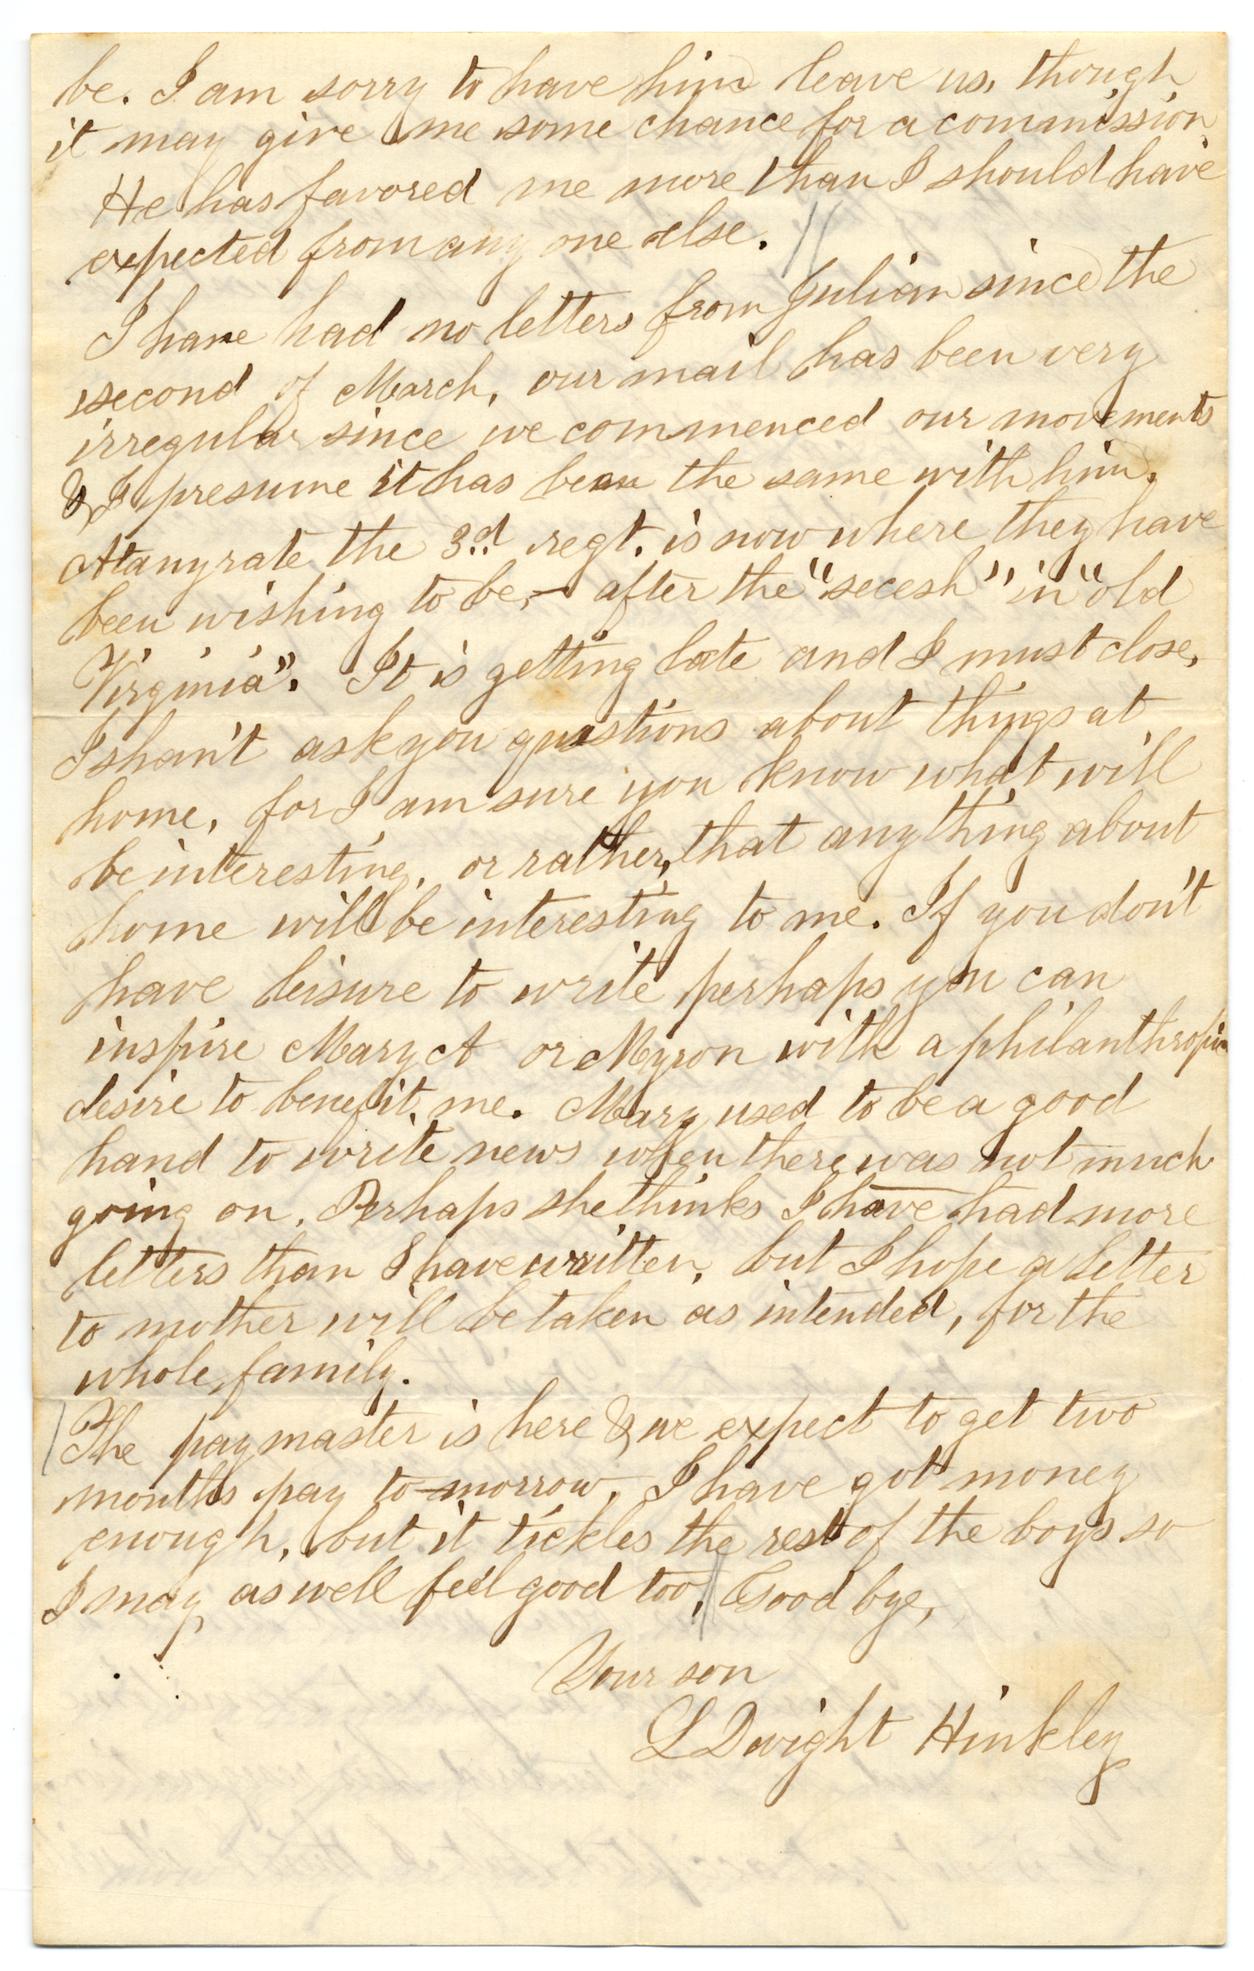 be. I am sorry to have him leave us, though
it may give me some chance for a commission.
He has favored me more than I should have
expected from any one else.
I have had no letters from Julian since the
second of March, our mail has been very
irregular since we commenced our movements
& I presume it has been the same with him.
At any rate the 3rd regt. is now where they have
been wishing to be,— after the "secesh" in "old
Virginia". It is getting late and I must close,
I shan't ask you questions about things at
home, for I am sure you know what will
be interesting, or rather, that anything about
home will be interesting to me. If you don't
have leisure to write perhaps you can
inspire Mary A or Myron with a philanthropic
desire to benefit me. Mary used to be a good
hand to write news when there was not much
going on. Perhaps she thinks I have had more
letters than I have written, but I hope a letter
to mother will be taken as intended, for the
whole family.
The paymaster is here & we expect to get two
months pay to-morrow. I have got money
enough, but it tickles the rest of the boys so
I may as well feel good too. Good bye,
Your son
L Dwight Hinkley